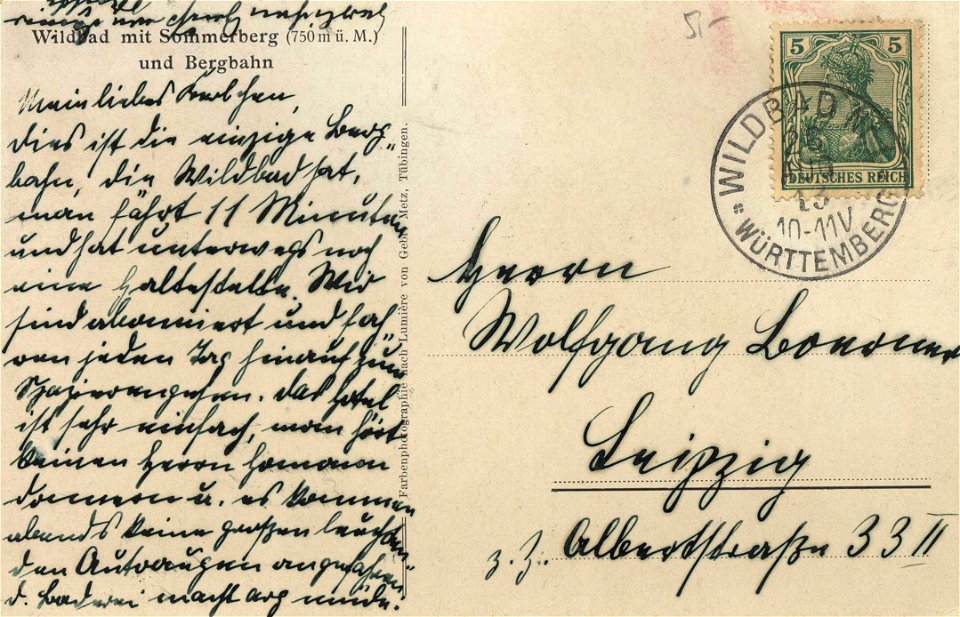 Wildbad mit Sommerberg (750 m ü. M.)
und Bergbahn
Mein liebes
dies ist die einzige Berg-
bahn, die Wildbad hat,
man fährt 11 Minuten
und hat unterwegs noch
eine Haltestelle. Wir
sind abonniert und fah-
ren jeden Tag hinauf zum
Spazierengehen. Das Hotel
ist sehr einfach, man hört
keinen Herrn
donnern u. es kommen
abends keine großen leuchten-
den Autoaugen angefahren
d. Baderei macht arg müde.
Farbenphotographie nach Lumière von Gebr. Metz, Tübingen.
5.-
5 5
DEUTSCHES REICH
WILDBAD
10-11V
WÜRTTEMBERG
Herrn
Wolfgang Boerner
Leipzig
z. Z. Albertstraße 33 II